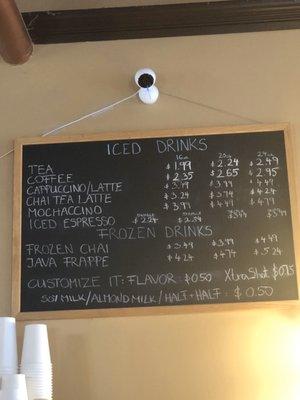 ICED DRINKS
16oz 20oz 24oz
TEA $1.99 $2.24 $2.49
COFFEE $2.35 $2.65 $2.95
CAPPUCCINO/LATTE $3.49 $3.99 $4.49
CHAI TEA LATTE $3.24 $3.74 $4.24
MOCHACCINO $3.99 $4.49 $4.99
ICED ESPRESSO $2.24 $2.84
FROZEN DRINKS
FROZEN CHAI $3.49 $3.99 $4.49
JAVA FRAPPE $4.24 $4.74 $5.24
CUSTOMIZE IT: FLAVOR $0.50 Xtra Shot $0.75
SOY MILK/ALMOND MILK/HALF+HALF: $0.50